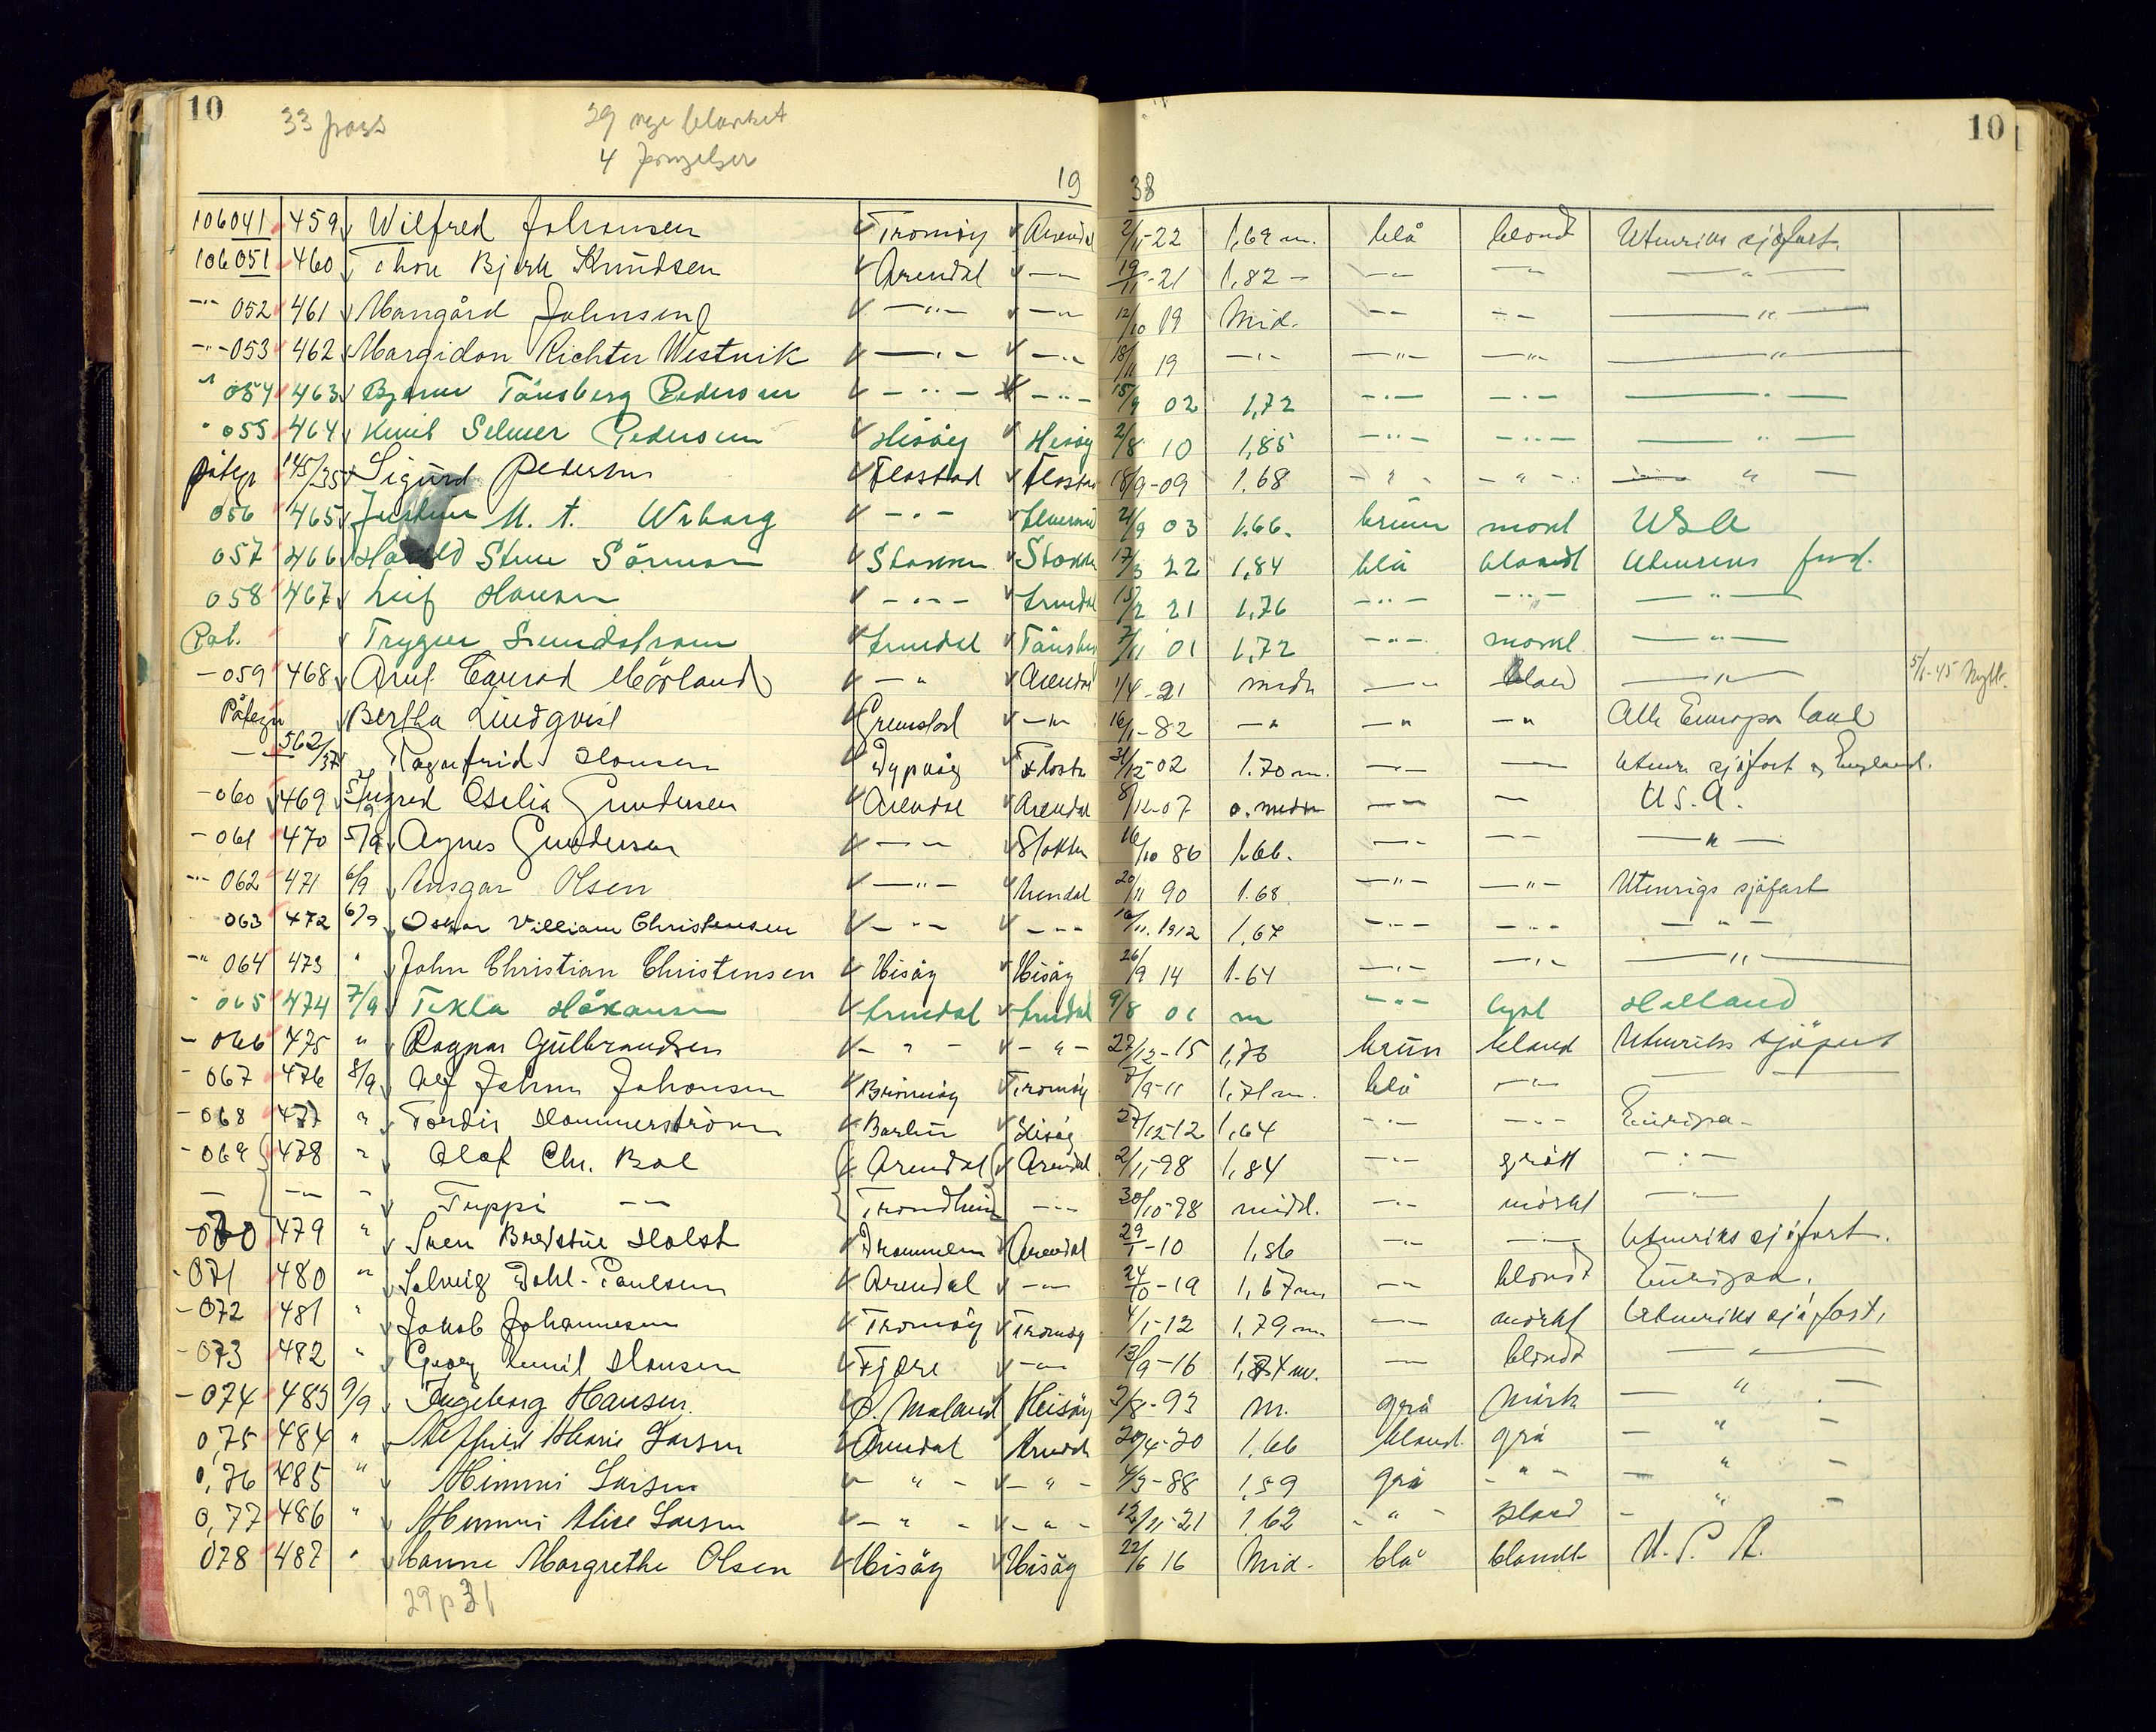 10 33 pass 29 nye blanket 10
4 fornyelser
19 38
106041 459 Wilfred Johansen Tromøy Arendal 2/11-22 1,69 m. blå blond Utenriks sjøfart.
106051 460 Thor Bjørn Knudsen Arendal -"- 19/11-21 1,82 - -"- -"- -"-
-"- 052 461 Mangård Johnsen -"- -"- 12/10 19 Mid. -"- -"- -"-
-"- 053 462 Margidon Richter Westvik -"- -"- 18/11 19 -"- -"- -"- -"-
" 054 463 Bjarne Tønsberg Pedersen -"- -"- 15/9 02 1,72 -"- -"- -"-
" 055 464 Emil Selmer Pedersen Hisøy Hisøy 2/8 10 1,85 -"- -"- -"-
Påtegn 145/35 Sigurd Pedersen Flostad Flosta 18/9-09 1.68 -"- -"- -"-
056 465 M. t. Wiborg -"- 2/9 03 1.66. brune mørkt USA
057 466 Harald Stene Sørensen Stokken Stokken 17/3 22 1,84 blå blondt Utenriks fart.
058 467 Leif Hansen -"- Arendal 15/2 21 1,76 -"- -"- -"-
Pat. Trygve Sundstrøm Arendal Tønsberg 7/11 01 1,72 -"- mørkt -"-
- 059 468 Arnt Conrad Mørland -"- Arendal 1/4-21 midd -"- blond -"- 5/6-45 Nytt.
Påtegn Bertha Lindqvist Grimstad -"- 16/1-82 -"- -"- -"- Alle Europas land
-"- 562/37 Ragnfrid Hansen Dypvåg Flosta 31/12-02 1.70 m. -"- -"- Utenr. sjøfart og England.
- 060 469 5/9 Ingrid Otelia Gundersen Arendal Arendal 8/12-07 o. medm -"- -"- U.S.A.
- 061 470 5/9 Agnes Gundersen -"- Stokken 16/10 86 1.66. -"- -"- -"-
-"- 062 471 6/9 Ansgar Olsen -"- Arendal 20/11 90 1.68 -"- -"- Utenrigs sjøfart
063 472 6/9 Oskar Villiam Christensen -"- -"- 16/11. 1912 1.67 -"- -"- -"-
-"- 064 473 " John Christian Christensen Hisøy Hisøy 26/9 14 1.64 -"- -"- -"-
- 065 474 7/9 Tekla Håkansen Arendal Arendal 9/8 01 m -"- lyst Holland
- 066 475 " Ragnar Gulbrandsen -"- -"- 27/12-15 1,70 brun blond Utenriks sjøfart
- 067 476 8/9 Alf Johan Johansen Tromøy 7/9-11 1,71 m. blå -"- -"-
- 068 477 " Tordis Hammerstrøm Berlin Hisøy 27/12-12 1,64 -"- -"- Europa-
- 069 478 " Olaf Chr. Boe Arendal Arendal 2/11-98 1,84 -"- grått -"-
- -"- " Tuppi -"- Trondheim -"- 30/10-98 midd. -"- mørkt -"-
- 070 479 " Sven Bredstue Holst Drammen Arendal 29/1-10 1,86 -"- -"- Utenriks sjøfart.
- 071 480 " Solveig Dahl-Paulsen Arendal -"- 24/10-19 1,67 m -"- blondt Europa.
- 072 481 " Jakob Johannesen Tromøy Tromøy 4/1-12 1,79 m. -"- mørkt Utenriks sjøfart,
- 073 482 " Georg Emil Hansen Fjære -"- 13/9-16 1,74 m. -"- blondt -"-
- 074 483 9/9 Ingeborg Hansen. Ø. Moland Hisøy 3/8-93 m. grå Mørk -"-
0,75 484 " Marie Larsen Arendal Arendal 20/4-20 1,66 blond. grå -"-
0,76 485 " Mimmi Larsen -"- -"- 4/3-88 1,59 grå -"- -"-
0,77 486 " Mimmi Alice Larsen -"- -"- 12/11-21 1.62 -"- blond -"-
078 487 " Hanne Margrethe Olsen Hisøy Hisøy 22/6 16 Mid. blå blondt U.S.A.
29 p 31